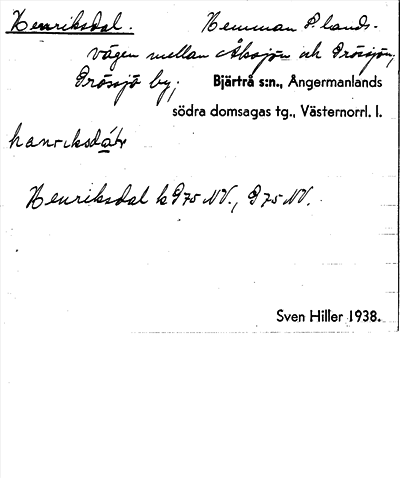 Henriksdal. Hemman S. lands-
vägen mellan Åksjön och Prössjön,
Prössjö by; Bjärtrå s:n., Ångermanlands
södra domsagas tg., Västernorrl. l.
Henriksdal k 975 NV., 975 NV.
Sven Hiller 1938.